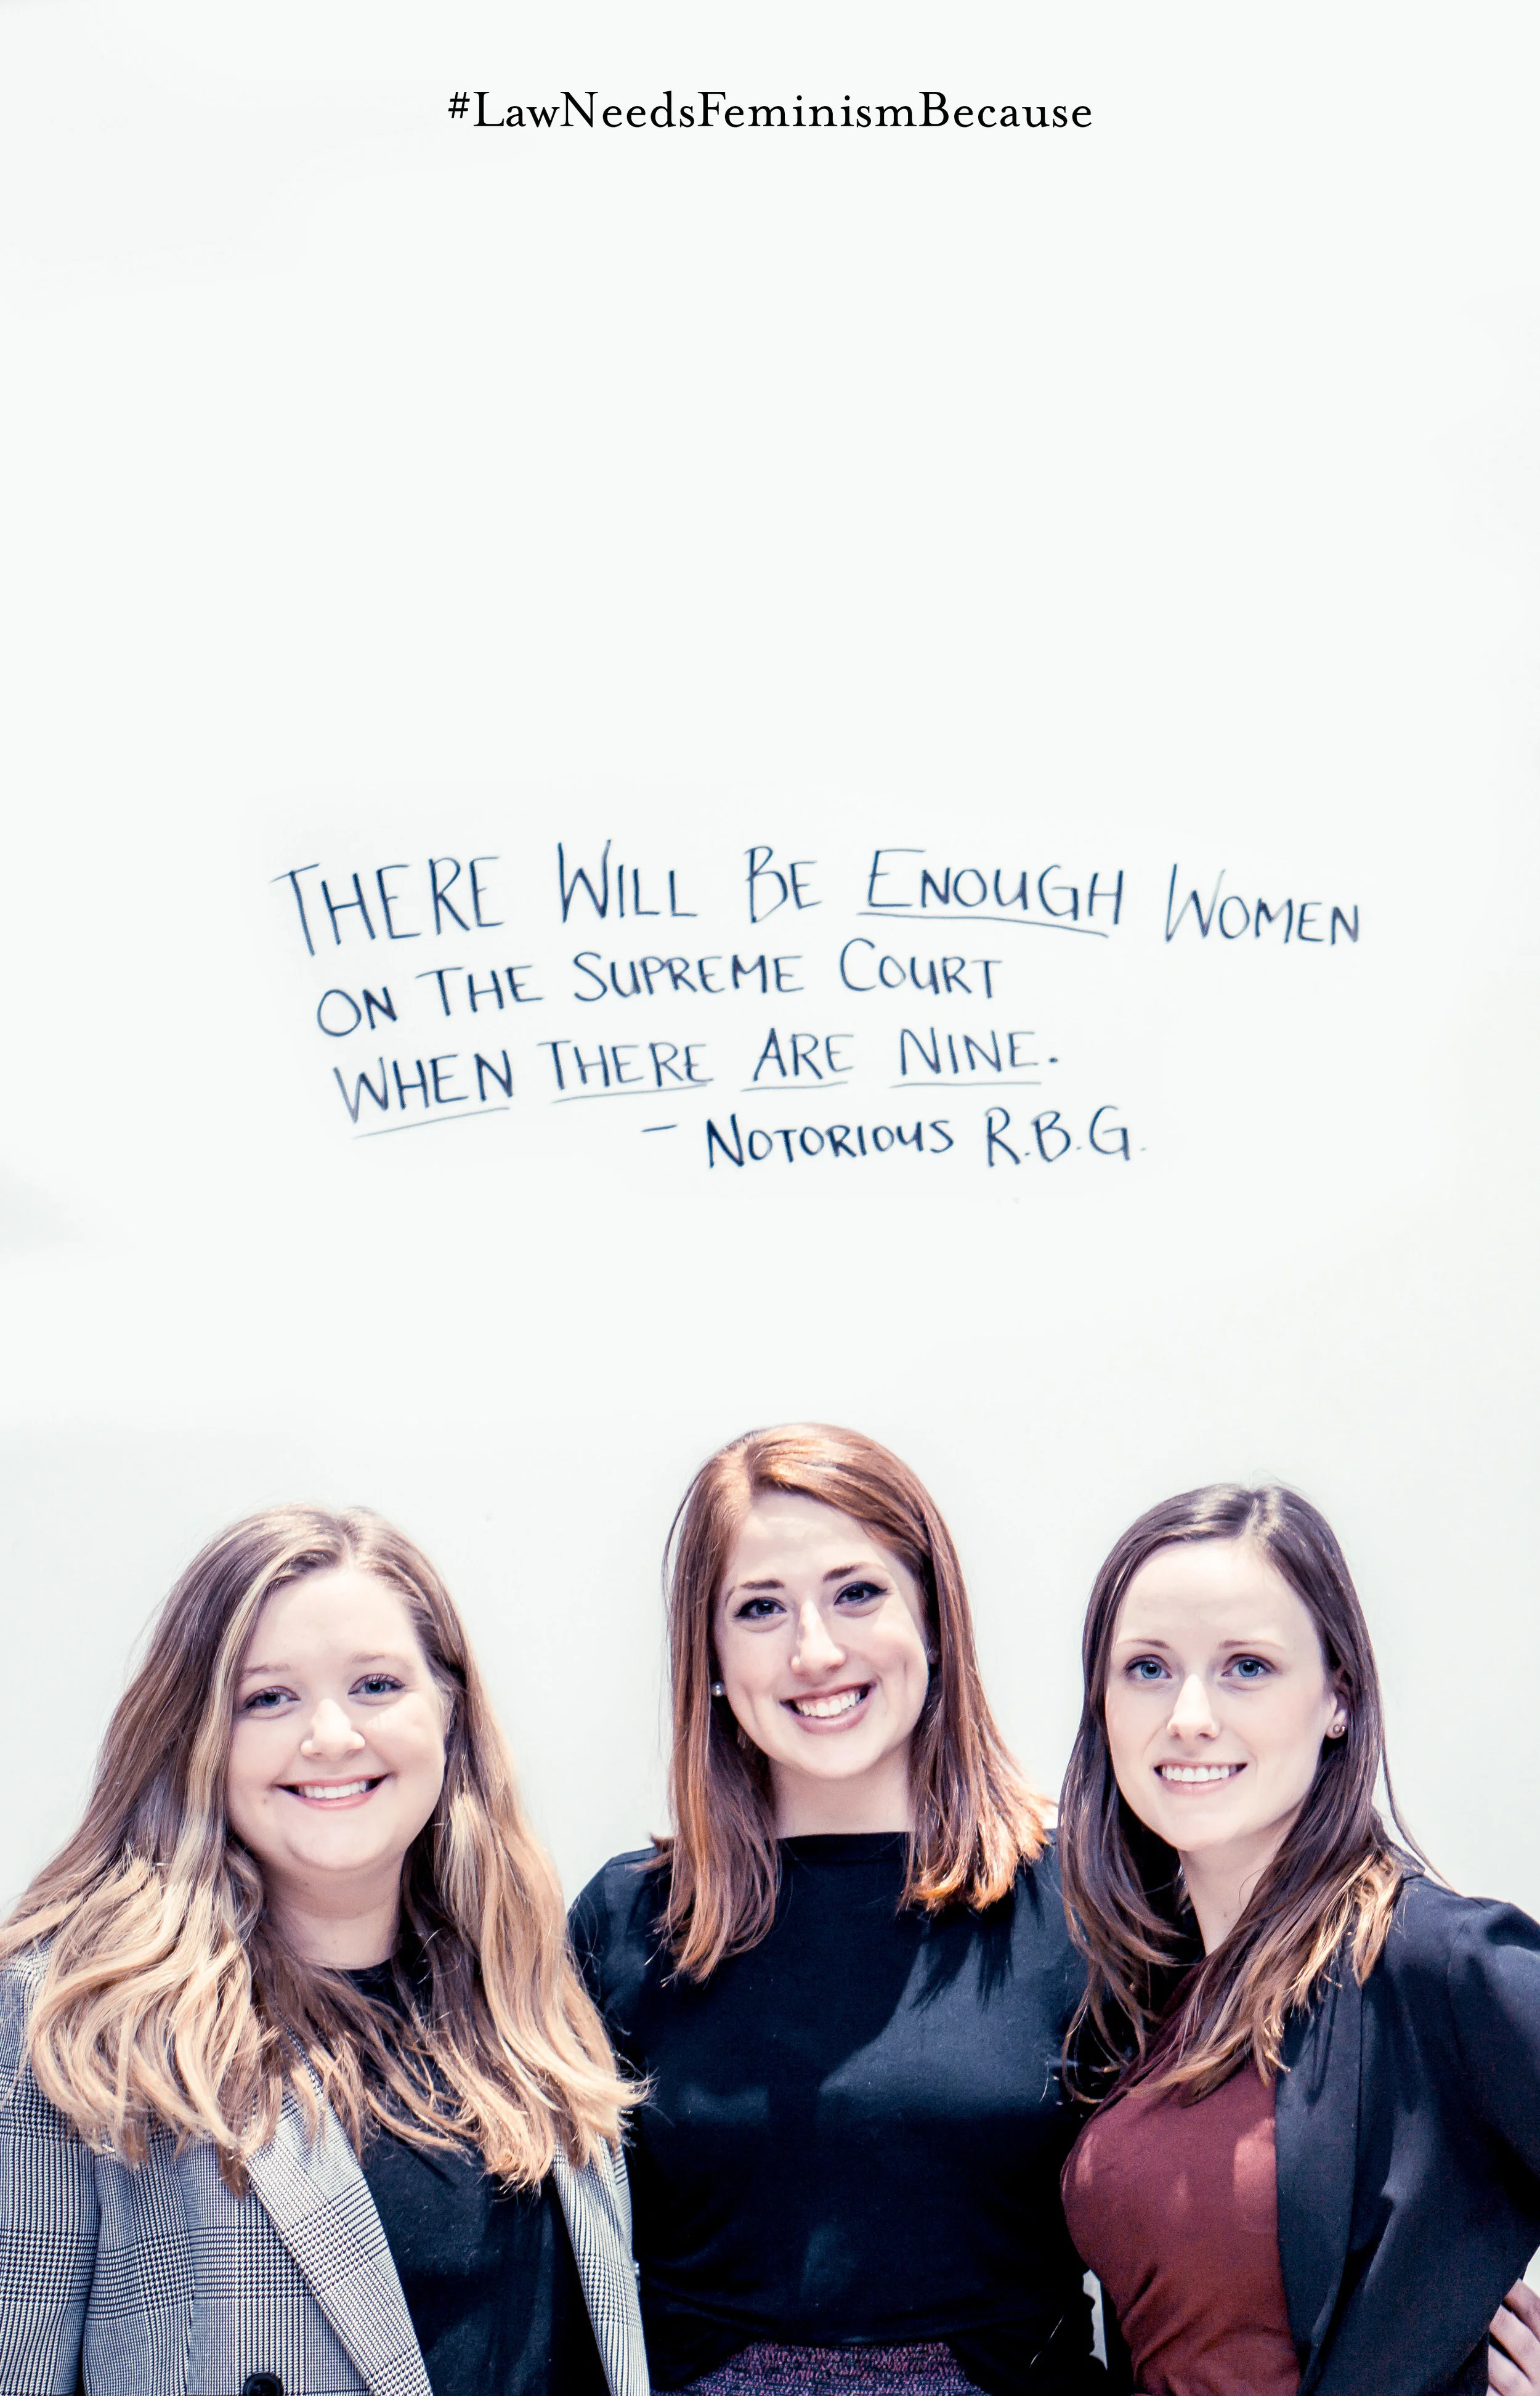 #LawNeedsFeminismBecause
THERE WILL BE ENOUGH WOMEN
ON THE SUPREME COURT
WHEN THERE ARE NINE.
- NOTORIOUS R.B.G.